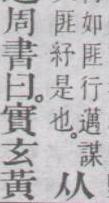 如匪行邁謀
匪紓是也。
从
周書曰。實玄黃